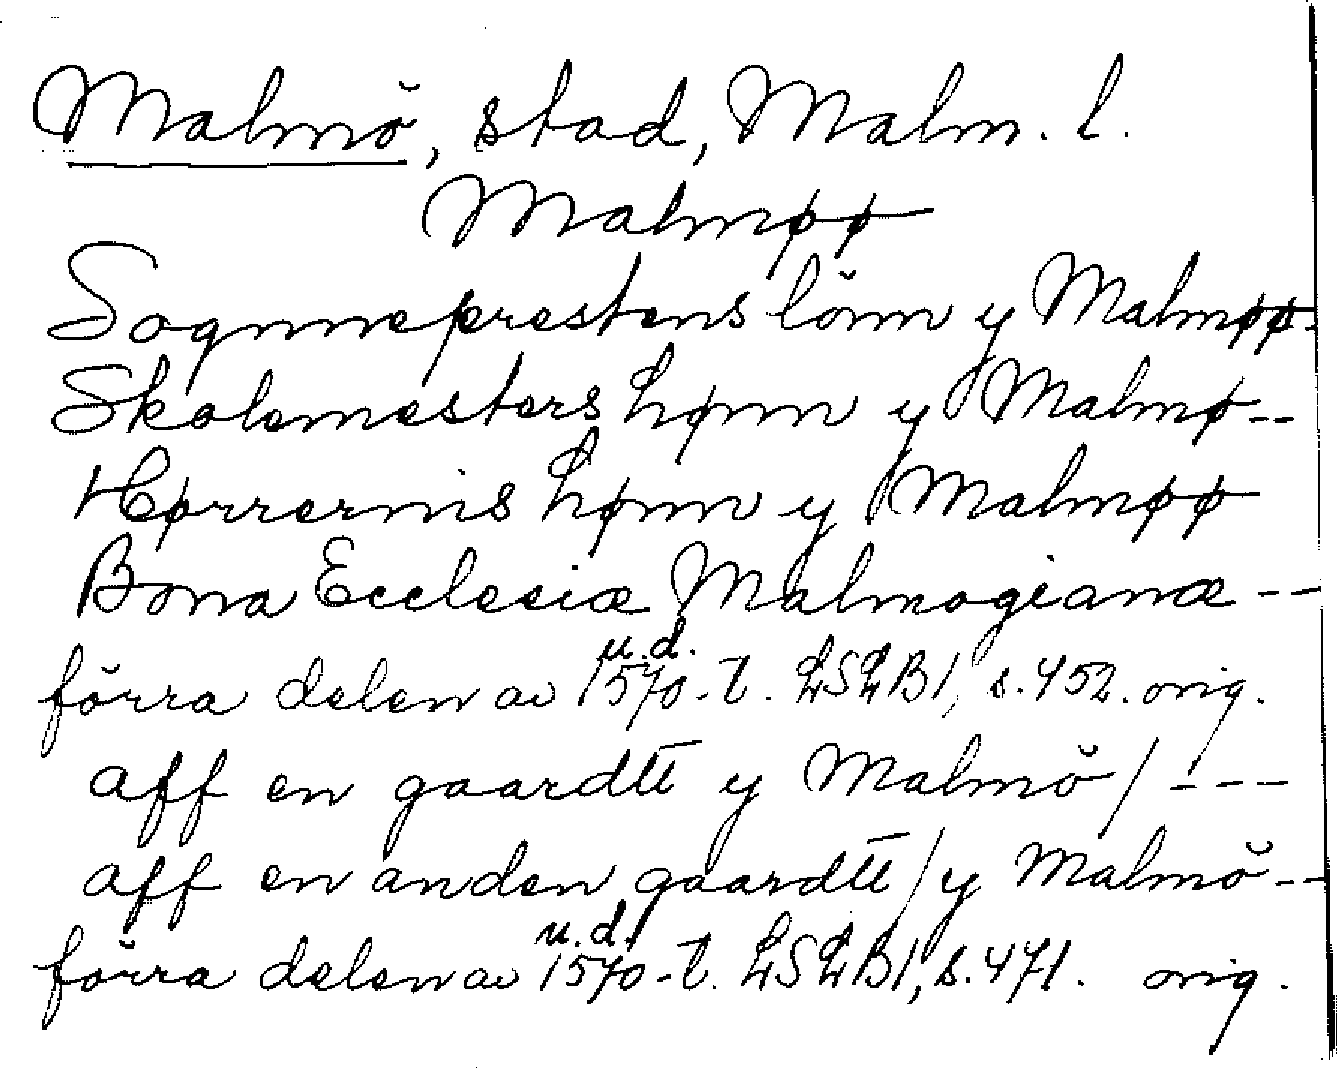 Malmö, stad, Malm. l.
Malmøø
Sognneprestens lönn y Malmøø-
Skolemesters Lønn y Malmø--
Hørrernis Lønn y Malmøø
Bona Ecclesiæ Malmogianæ --
u.d.
förra delen av 1570-t. LSLB1, s. 452. orig.
aff en gaardtt y Malmö / ---
aff en anden gaardtt / y Malmö --
u.d.
förra delen av 1570-t. LSLB1, s. 471. orig.